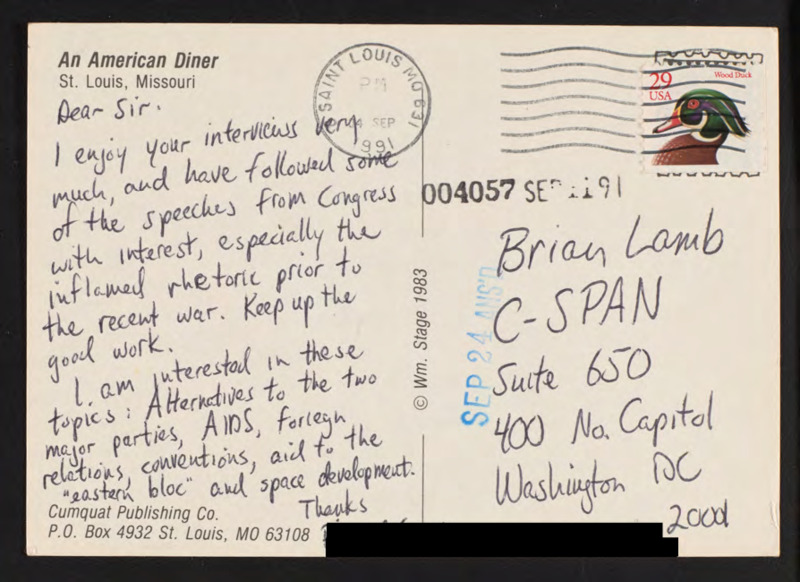 An American Diner
St. Louis, Missouri
Dear Sir.
I enjoy your interviews very
much, and have followed some
of the speeches from Congress
with interest, especially the
inflamed rhetoric prior to
the recent war. Keep up the
good work.
I am interested in these
topics: Alternatives to the two
major parties, AIDS, foriegn
relations, conventions, aid to the
"eastern bloc" and space development.
Thanks
Cumquat Publishing Co.
P.O. Box 4932 St. Louis, MO 63108
© Wm. Stage 1983
SAINT LOUIS MO 631
PM
SEP
1991
29
USA
Wood Duck
004057 SEP 91
SEP 24 ANS'D
Brian Lamb
C-SPAN
Suite 650
400 No. Capitol
Washington DC
20001